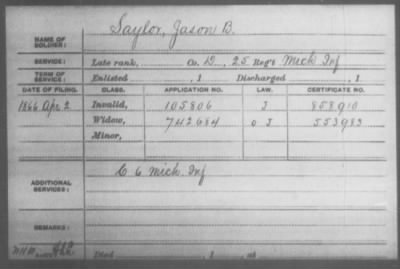 NAME OF SOLDIER: Saylor, Jason B.
SERVICE: Late rank, Co. D, 25 Reg't Mich Inf
TERM OF SERVICE: Enlisted , 1 Discharged , 1
DATE OF FILING. CLASS. APPLICATION NO. LAW. CERTIFICATE NO.
1866 Apr 2 Invalid, 105806 J 858910
Widow, 742684 O J 553983
Minor,
ADDITIONAL SERVICES: C 6 Mich. Inf
REMARKS:
Died , 1 , at